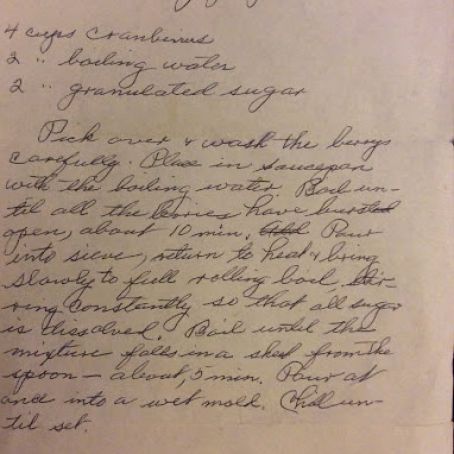 4 cups cranberries
2 " boiling water
2 " granulated sugar
Pick over & wash the berrys
carefully. Place in saucepan
with the boiling water. Boil un-
til all the berries have bursted
open, about 10 min. Add Pour
into sieve, return to heat & bring
slowly to full rolling boil, stir-
ring constantly so that all sugar
is dissolved. Boil until the
mixture falls in a sheet from the
spoon — about 5 min. Pour at
once into a wet mold. Chill un-
til set.